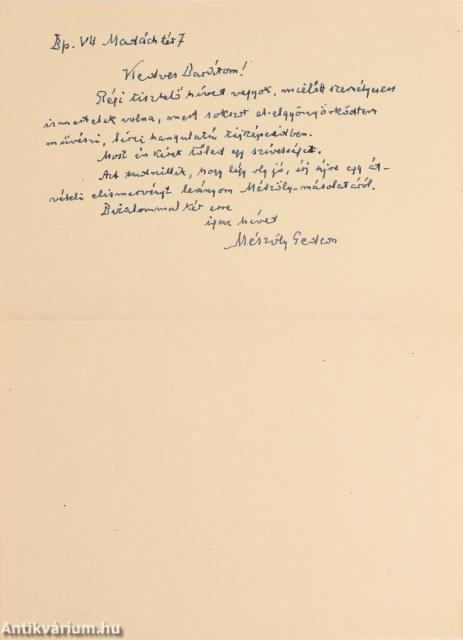 Bp. VII Madách tér 7
Kedves Barátom!
Régi tisztelő híved vagyok, mielőtt személyesen
ismertelek volna, mert sokszor el-elgyönyörködtem
művészi, lírai hangulatú tájképeidben.
Most én kérek Tőled egy szívességet.
Azt tudniillik, hogy légy oly jó, írj újra egy át-
vételi elismervényt leányom Mészöly-másolatáról.
Bizalommal kér erre
igaz híved
Mészöly Gedeon
Antikvárium.hu